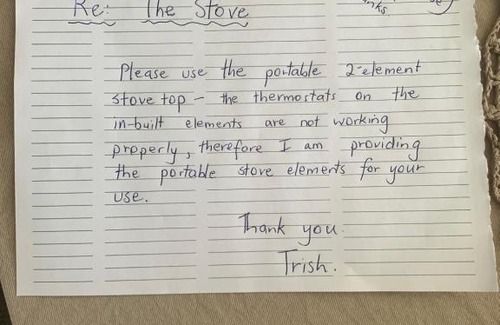 Re: The Stove
Please use the portable 2-element
stove top - the thermostats on the
in-built elements are not working
properly, therefore I am providing
the portable stove elements for your
use.
Thank you.
Trish.